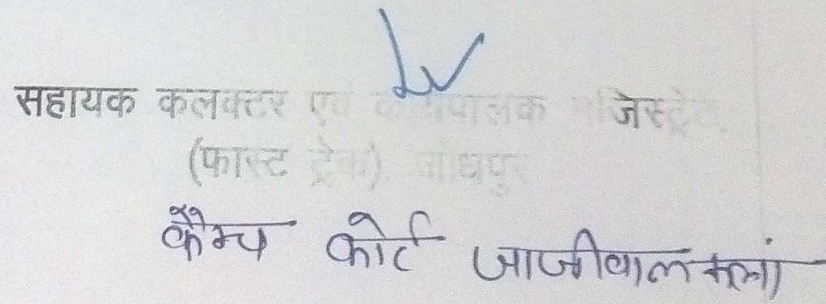 सहायक कलक्टर एवं कार्यपालक मजिस्ट्रेट
(फास्ट ट्रेक) जोधपुर
कैम्प कोर्ट जाजीवाल कलां